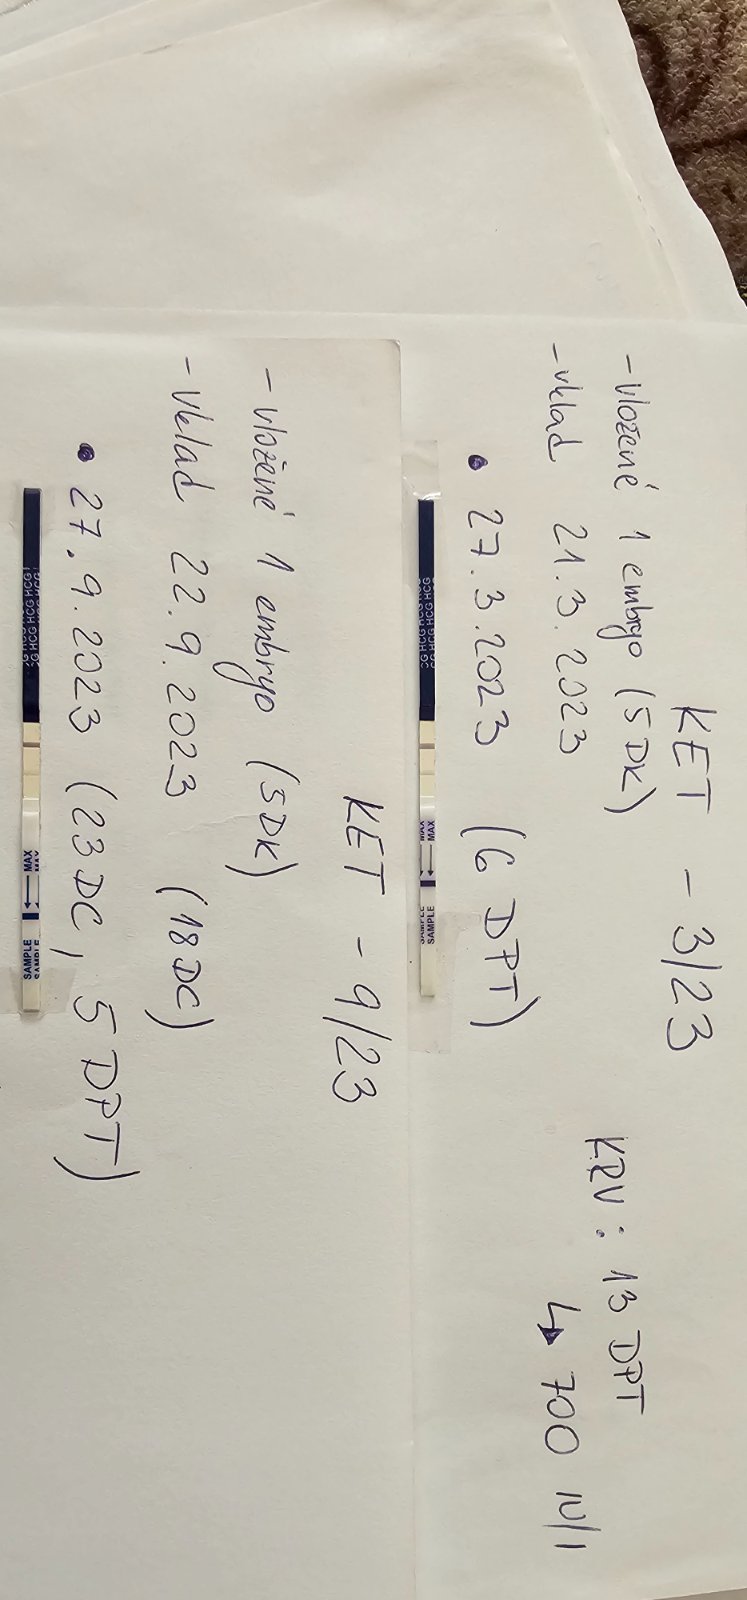 KET - 3/23
- vložené 1 embryo (5DK)
- vklad 21.3.2023
• 27.3.2023 (6 DPT)
KRV: 13 DPT
↳ 700 IU/l
HCG HCG HCG
MAX
SAMPLE
KET - 9/23
- vložené 1 embryo (5DK)
- vklad 22.9.2023 (18DC)
• 27.9.2023 (23DC, 5 DPT)
HCG HCG HCG
MAX
SAMPLE